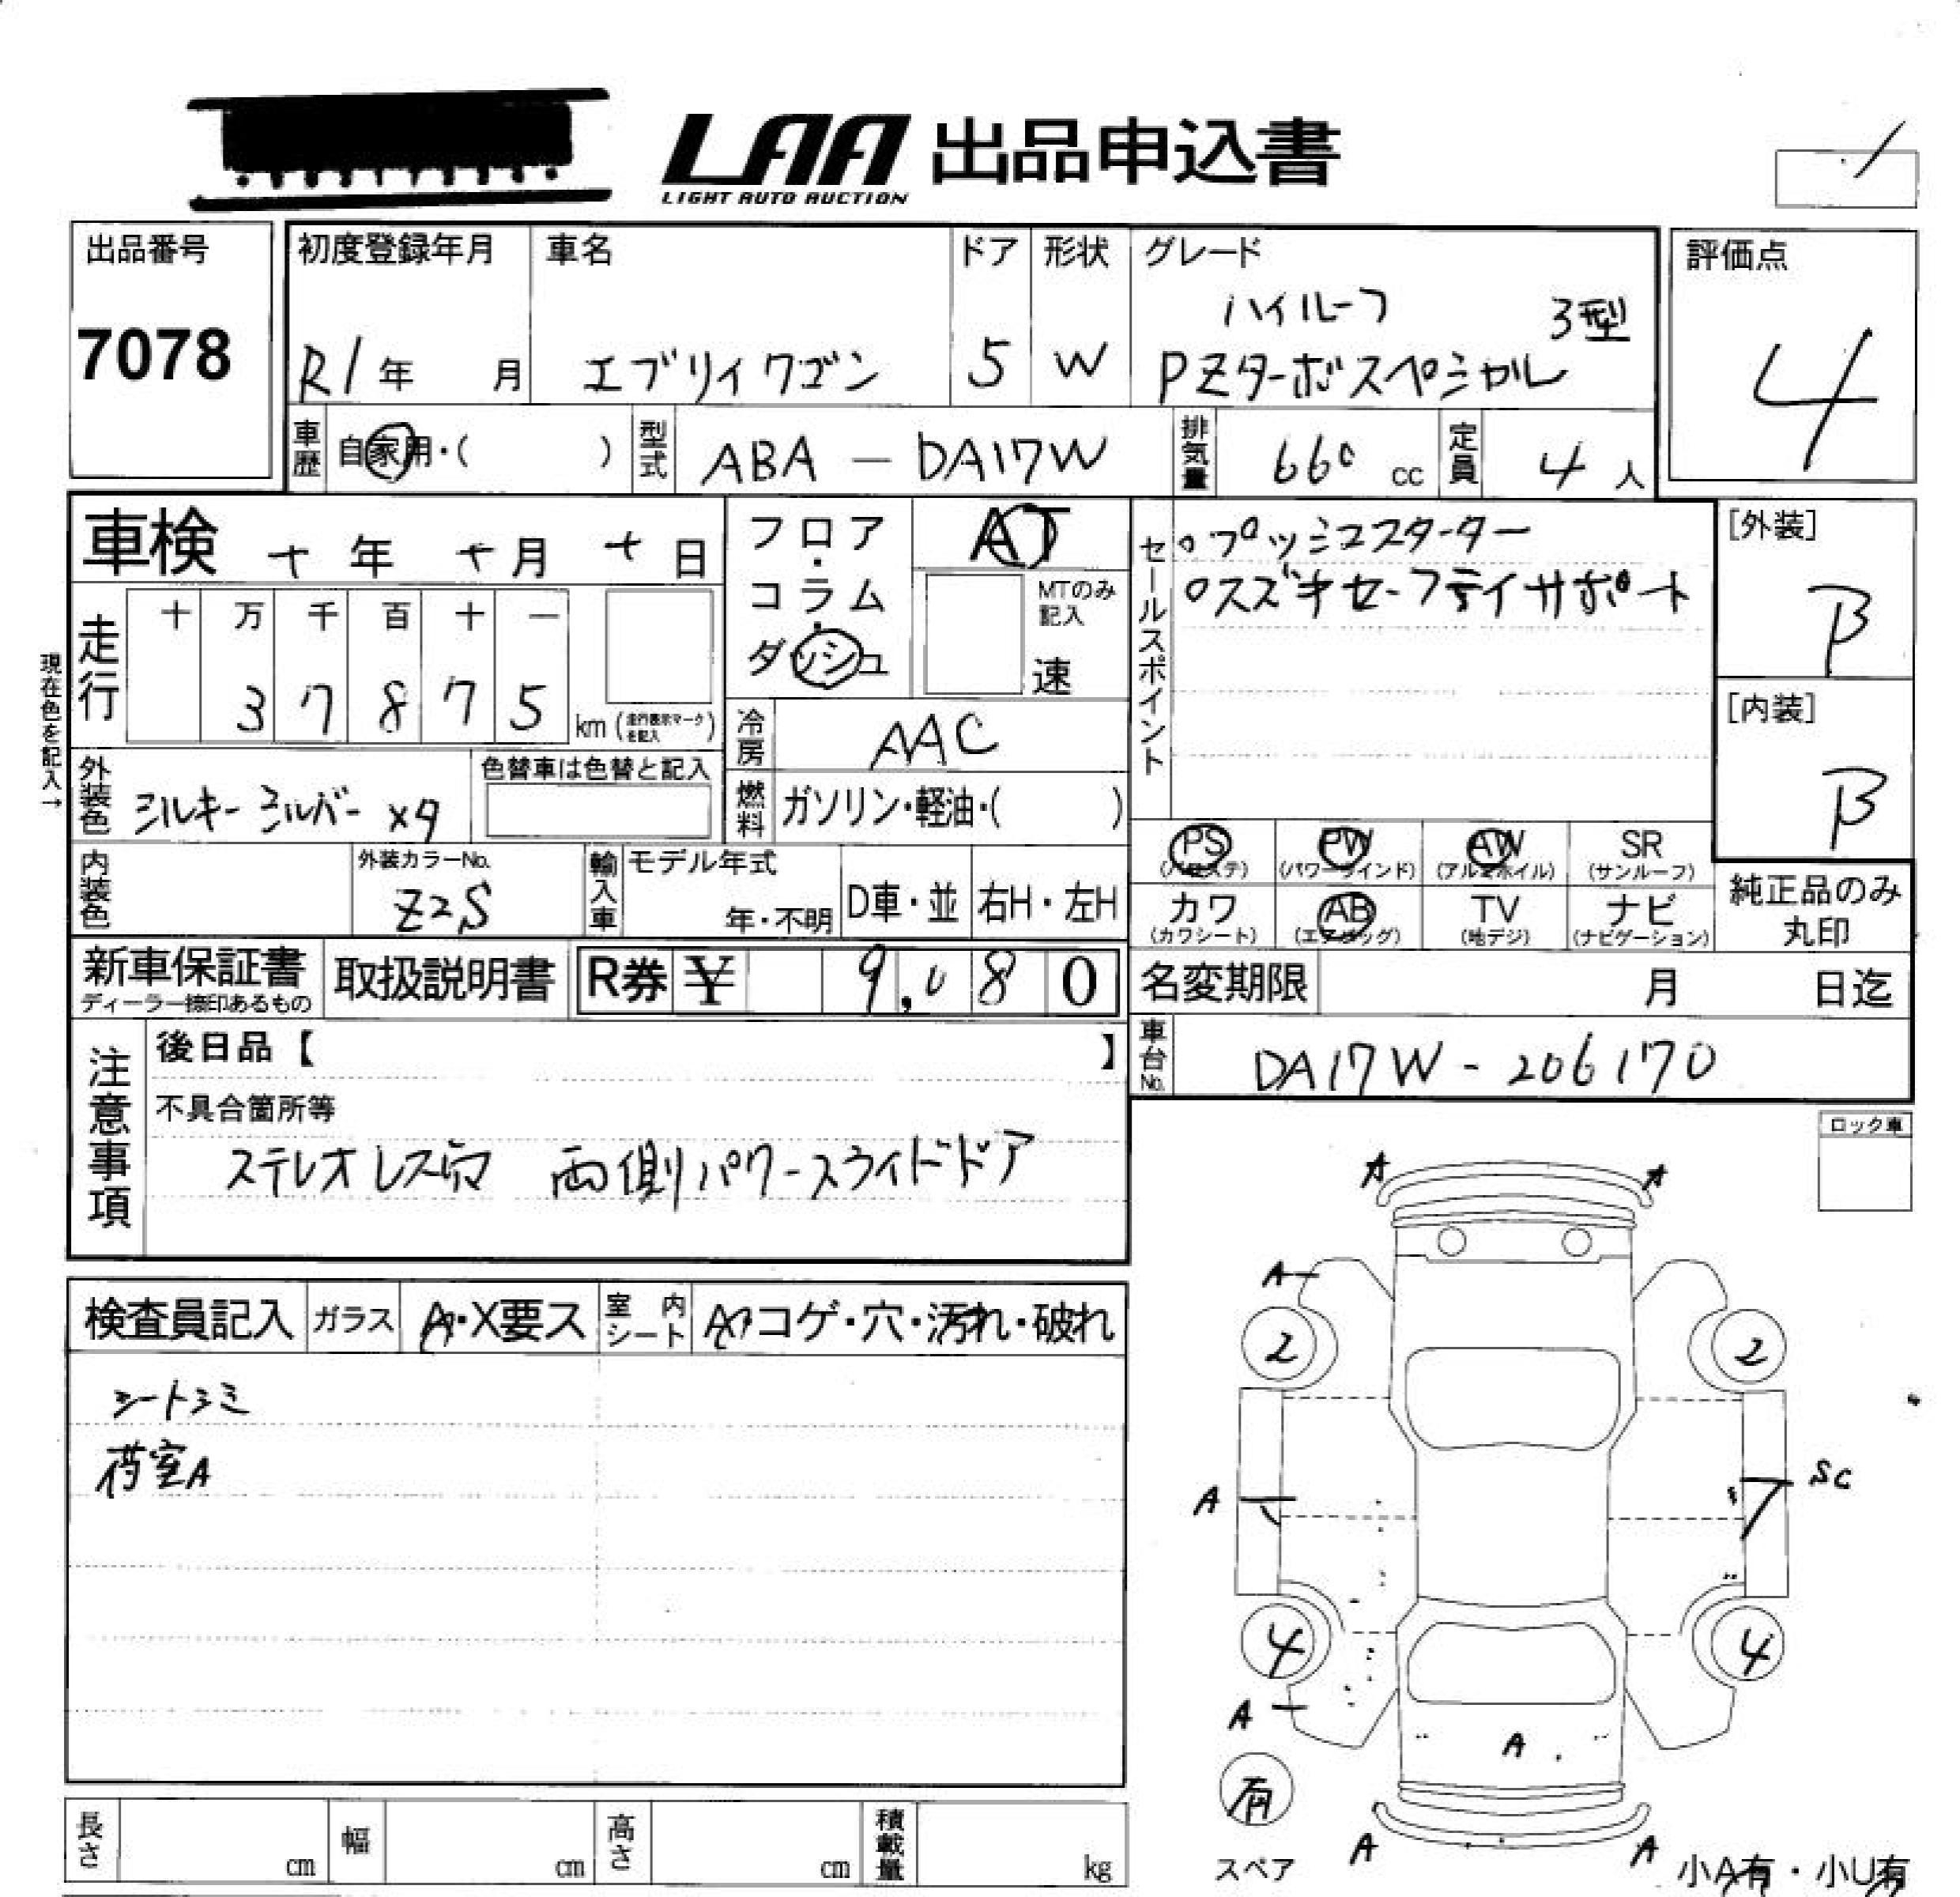 LAA 出品申込書
LIGHT AUTO AUCTION
出品番号
7078
初度登録年月
R1年 月
車名
エブリイワゴン
ドア
5
形状
W
グレード
ハイルーフ 3型
PZターボスペシャル
評価点
4
車歴 自家用・( )
型式 ABA - DA17W
排気量 660 cc
定員 4 人
車検 十 年 十 月 十 日
フロア・コラム・ダッシュ
AT
MTのみ記入
速
走行
十 万 千 百 十 一
3 7 8 7 5 km (走行表示マークを記入)
現在色を記入→
冷房 AAC
燃料 ガソリン・軽油・( )
外装色 シルキーシルバー x9
色替車は色替と記入
内装色
外装カラーNo.
Z2S
輸入車 モデル年式
年・不明
D車・並 右H・左H
セールスポイント
○プッシュスターター
○スズキセーフティサポート
[外装]
B
[内装]
B
PS (パワステ) PW (パワーウインド) AW (アルミホイル) SR (サンルーフ)
カワ (カワシート) AB (エアバッグ) TV (地デジ) ナビ (ナビゲーション)
純正品のみ丸印
新車保証書
ディーラー捺印あるもの
取扱説明書
R券 ¥ 9,080
名変期限 月 日迄
車台No. DA17W - 206170
注意事項
後日品【 】
不具合箇所等
ステレオレス穴 両側パワースライドドア
ロック車
検査員記入 ガラス A・X要ス 室内シート A コゲ・穴・汚れ・破れ
シートシミ
荷室A
A A
A
2 2
A SC
4 4
A
A
有
スペア
A A
小A有・小U有
長さ cm 幅 cm 高さ cm 積載量 kg